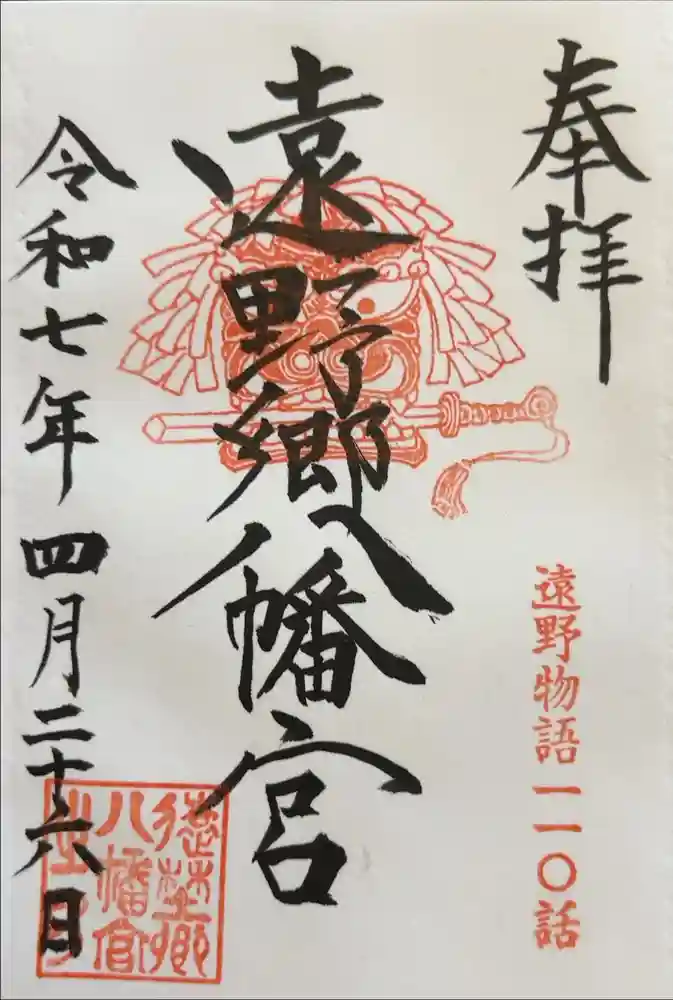 奉拝
遠野物語一一〇話
遠野郷八幡宮
令和七年四月二十六日